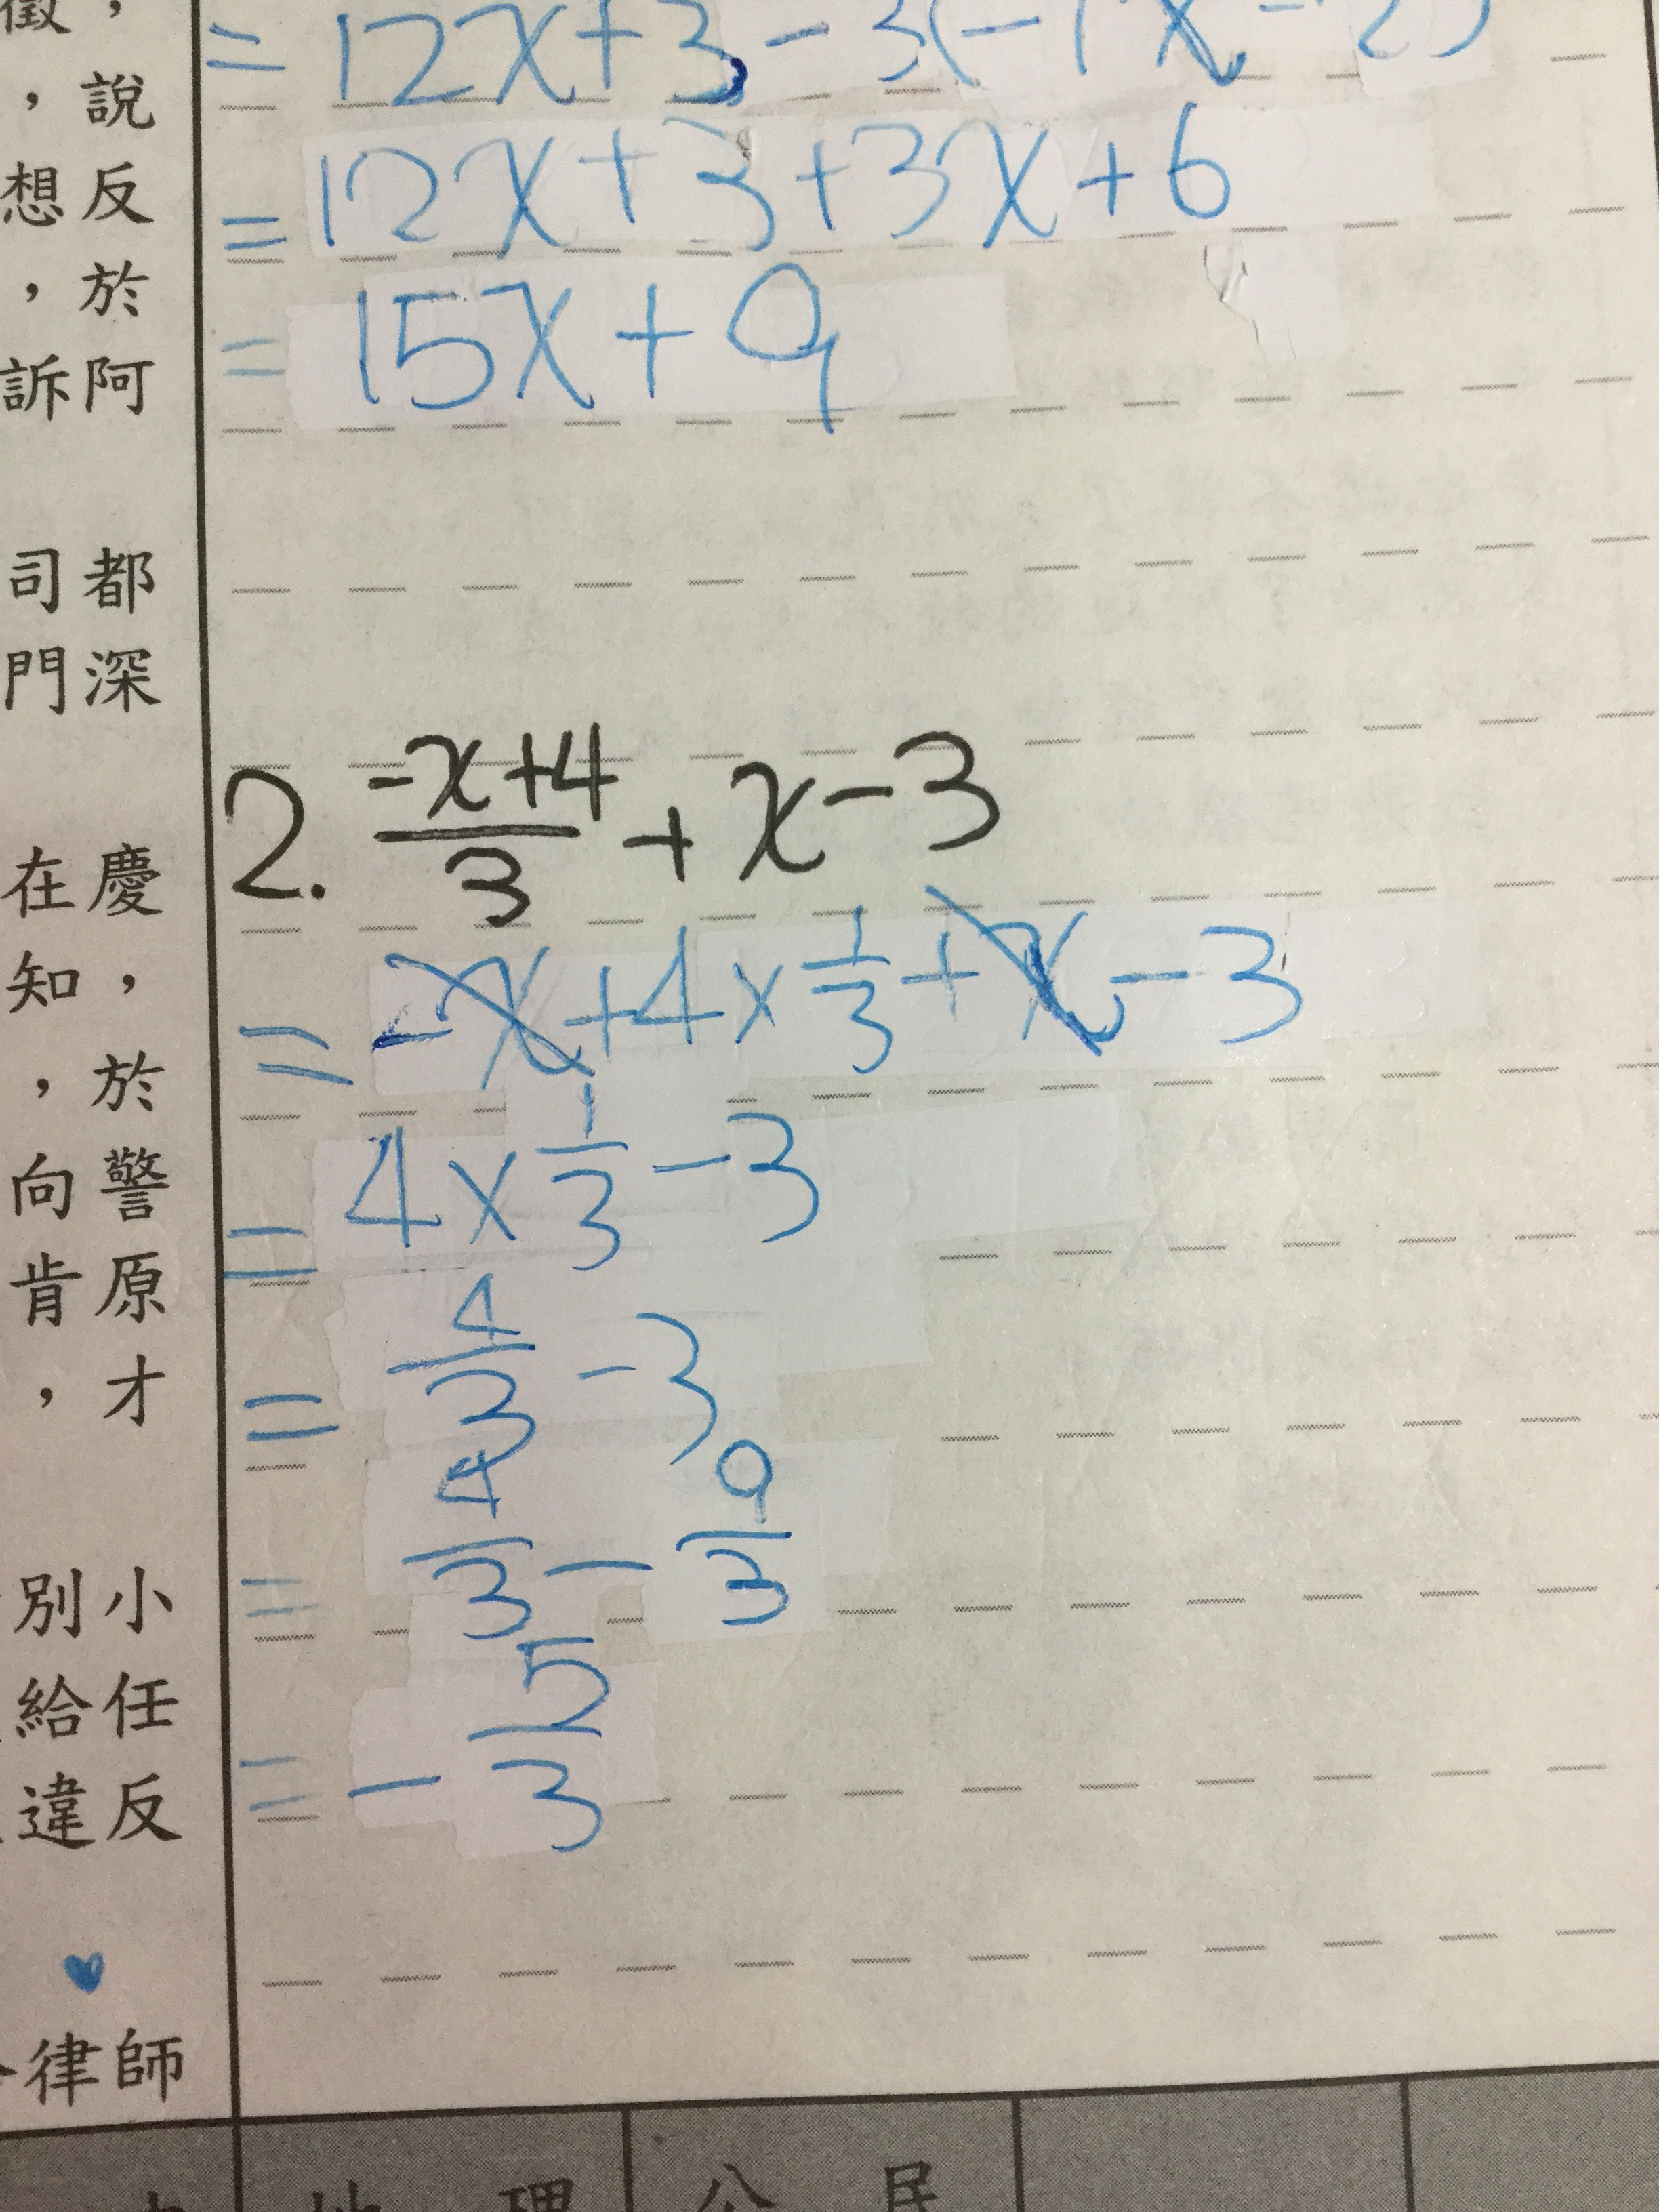 = 12x+3-3(-1x-2)
= 12x+3+3x+6
= 15x+9
2. \frac{-x+4}{3} + x-3
= -x+4×\frac{1}{3}+x-3
= 4×\frac{1}{3}-3
= \frac{4}{3}-3
= \frac{4}{3}-\frac{9}{3}
= -\frac{5}{3}
說反於阿都深慶,於警原才小任反師
徵,想,訴司門在知,向肯,別給違律
地理
公民